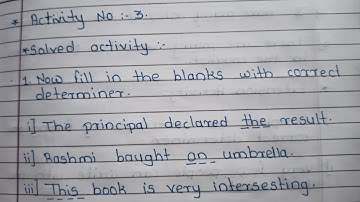 * Activity No :- 3.
* Solved activity :-
1. Now fill in the blanks with correct
determiner.
i] The principal declared the result.
ii] Rashmi baught an umbrella.
iii] This book is very intersesting.